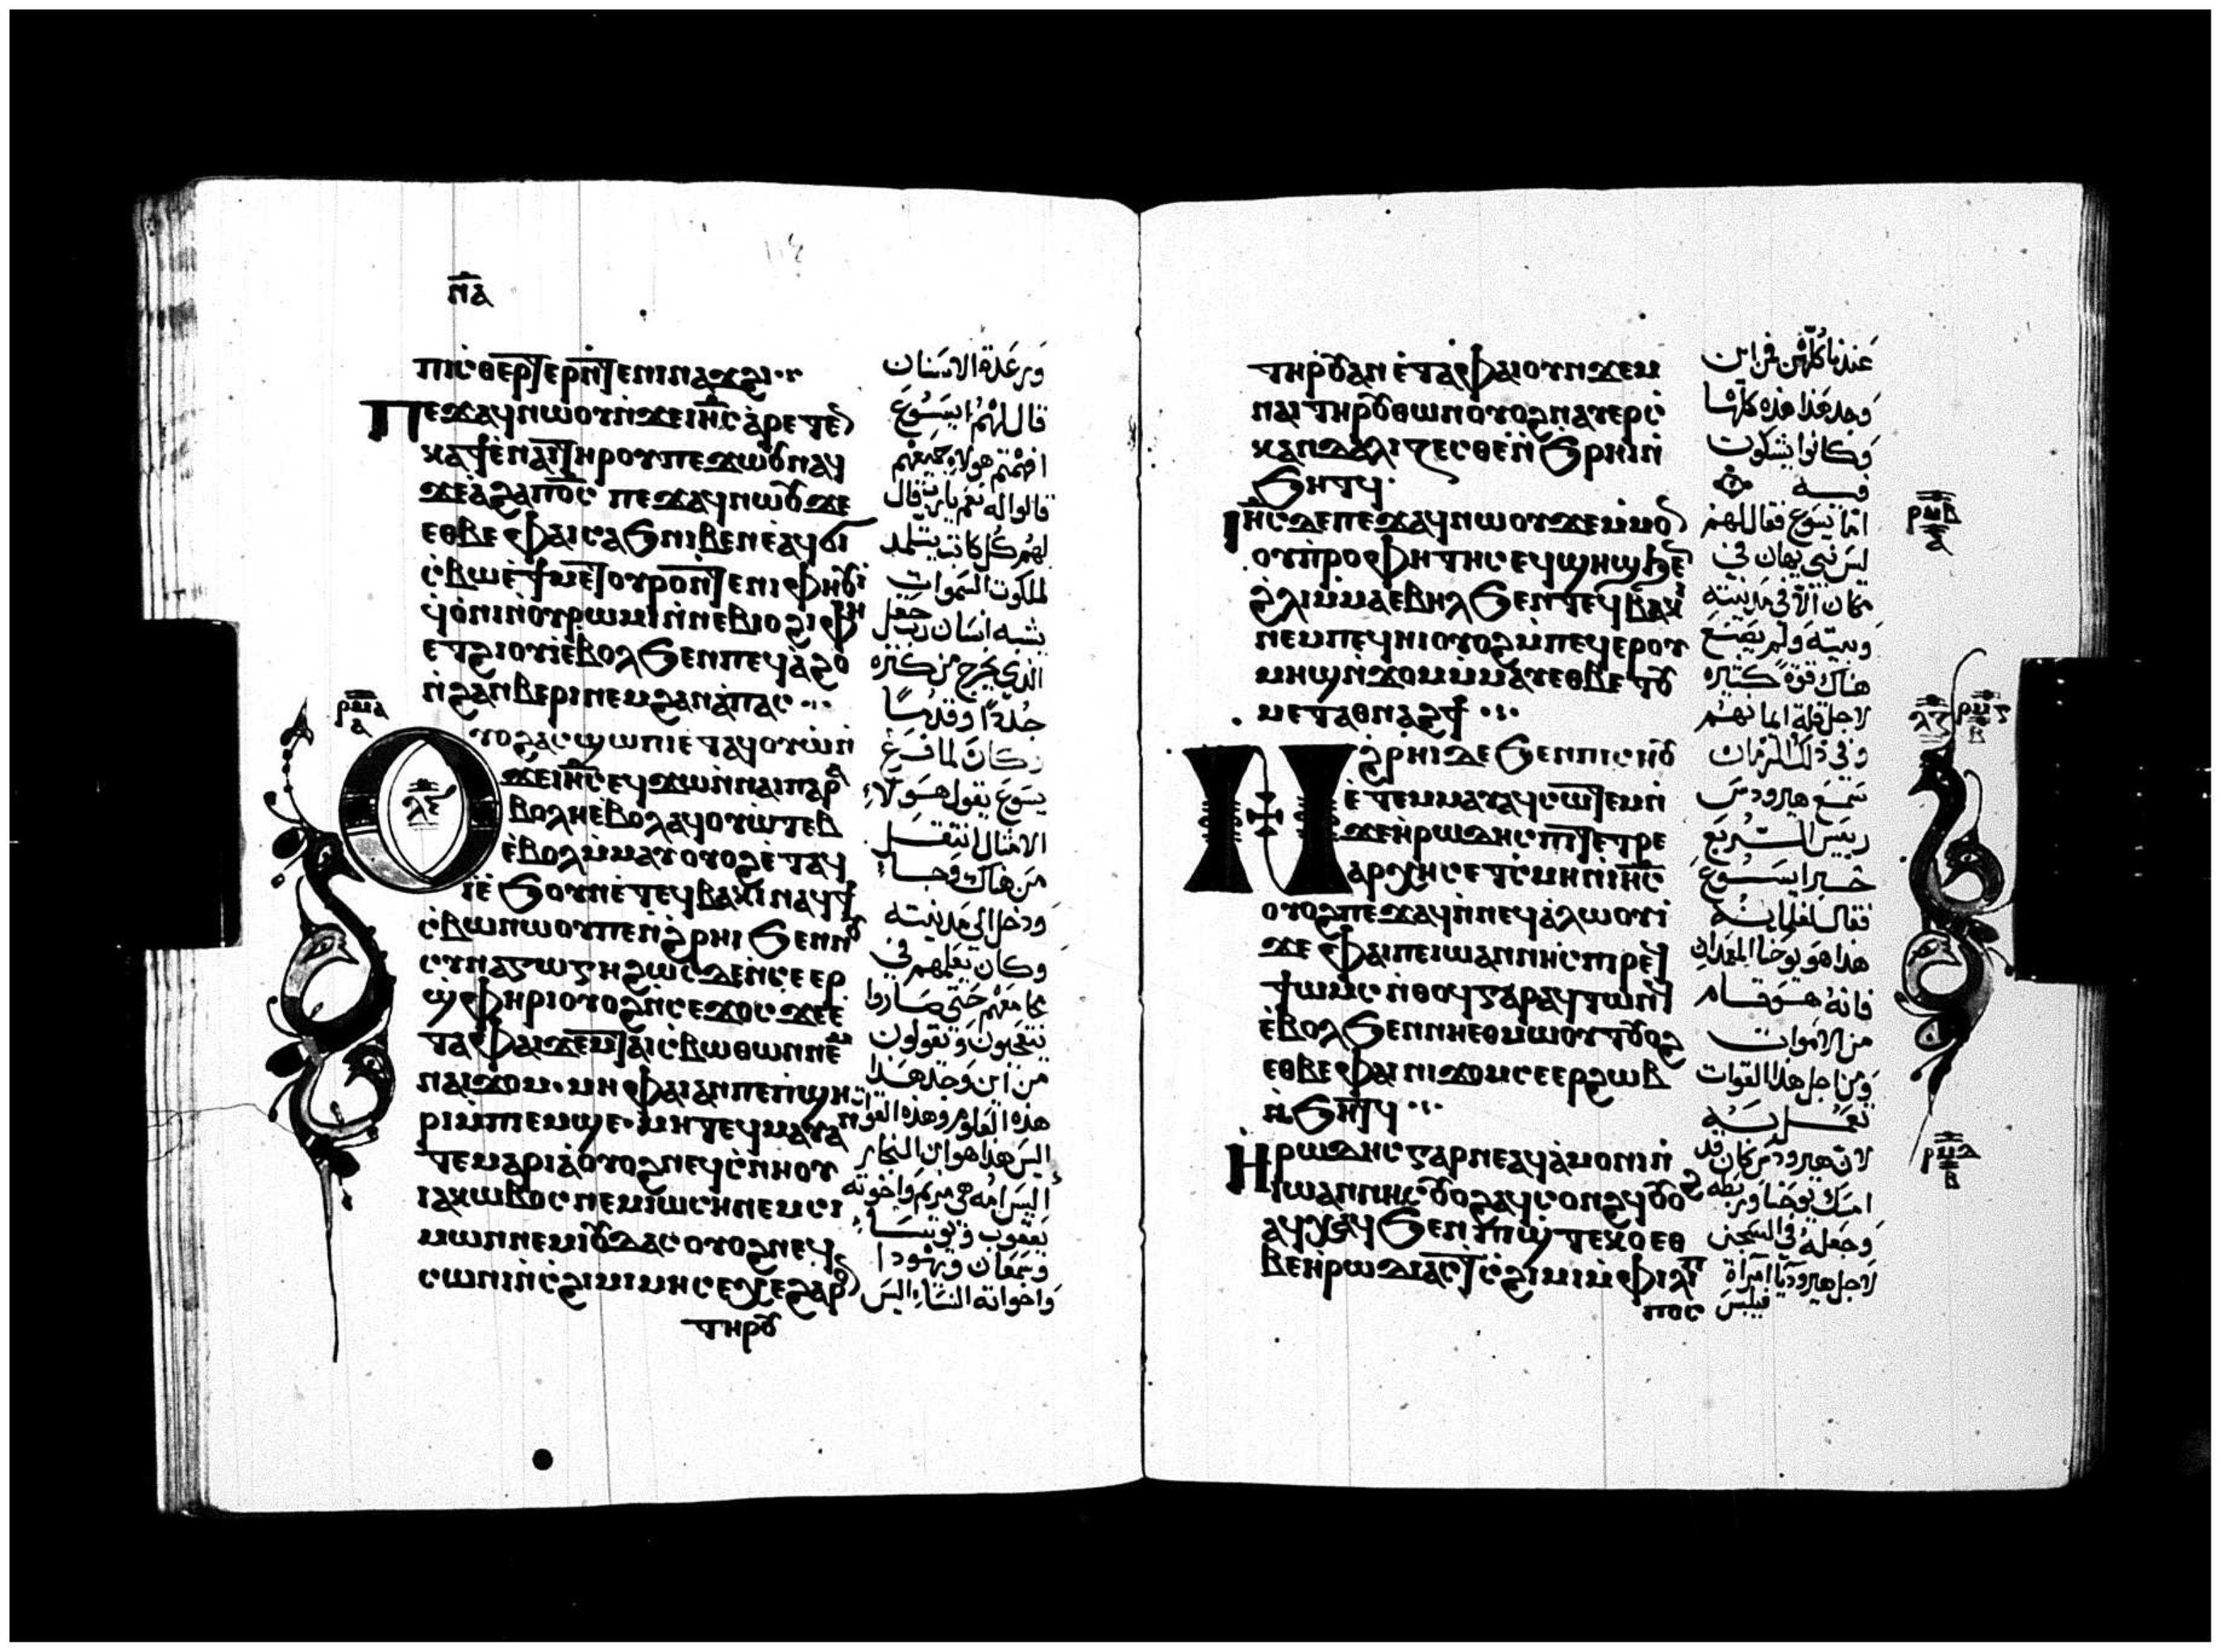 ⲛ̅ⲁ̅
ⲡⲓⲥⲑⲉⲣⲧⲉⲣⲛ̀ⲧⲉⲛⲓⲛⲁϫϩⲓ
ⲡⲉϫⲁϥⲛⲱⲟⲩⲛ̀ϫⲉⲓⲏ̅ⲥ̅ⲁ̀ⲣⲉⲧⲉⲛ
ⲕⲁϯⲉ̀ⲛⲁⲓⲧⲏⲣⲟⲩⲡⲉϫⲱⲟⲩⲛⲁϥ
ϫⲉⲁ̀ϩⲁⲡⲟ̅ⲥ̅ ⲡⲉϫⲁϥⲛⲱⲟⲩϫⲉ
ⲉⲑⲃⲉⲫⲁⲓⲥⲁϧⲛⲓⲃⲉⲛⲉⲁϥϭⲓ
ⲥ̀ⲃⲱⲉ̀ϯⲙⲉⲧⲟⲩⲣⲟⲛ̀ⲧⲉⲛⲓⲫⲏⲟⲩⲓ̀
ϥ̀ⲟ̀ⲛⲓⲛ̀ⲟⲩⲣⲱⲙⲓⲛ̀ⲛⲉⲃⲓⲟϩⲓⲫⲏ
ⲉⲧϩⲓⲟⲩⲓ̀ⲉⲃⲟⲗϧⲉⲛⲡⲉϥⲁ̀ϩⲟ
ⲛ̀ϩⲁⲛⲃⲉⲣⲓⲛⲉⲙϩⲁⲛⲁ̀ⲡⲁⲥ
ⲣⲙⲁ
ⲁ
ⲗⲉ
ⲟⲩⲟϩⲁⲥϣⲱⲡⲓⲉ̀ⲧⲁϥⲟⲩⲱ̀ⲛ̀
ϫⲉⲓⲏ̅ⲥ̅ⲉϥϫⲱⲛ̀ⲛⲁⲓⲡⲁⲣⲁ
ⲃⲟⲗⲏⲉ̀ⲃⲟⲗⲁϥⲟⲩⲱ̀ⲧⲉⲃ
ⲉ̀ⲃⲟⲗⲙ̀ⲙⲁⲩⲟⲩⲟϩⲉ̀ⲧⲁϥ
ⲓ̀ⲉ̀ϧⲟⲩⲛⲉ̀ⲧⲉϥⲃⲁⲕⲓⲛⲁϥϯ
ⲥ̀ⲃⲱⲛⲱⲟⲩⲡⲉⲛ̀ϩⲣⲏⲓϧⲉⲛⲛⲟⲩ
ⲥⲩⲛⲁⲅⲱⲅⲏϩⲱⲥⲇⲉⲛ̀ⲥⲉⲉⲣ
ϣ̀ⲫⲏⲣⲓⲟⲩⲟϩⲛ̀ⲥⲉϫⲟⲥϫⲉⲉ̀
ⲧⲁⲫⲁⲓϫⲉⲙⲧⲁⲓⲥⲃⲱⲑⲱⲛⲛⲉⲙ
ⲛⲁⲓϫⲟⲙ·ⲙⲏⲫⲁⲓⲁⲛⲡⲉⲡ̀ϣⲏ
ⲣⲓⲙ̀ⲡⲉⲙϣⲉ·ⲙⲏⲧⲉϥⲙⲁⲩⲁⲛ
ⲧⲉⲙⲁⲣⲓⲁ̀ⲟⲩⲟϩⲛⲉϥⲥ̀ⲛⲏⲟⲩ
ⲓⲁⲕⲱⲃⲟⲥⲛⲉⲙⲓ̀ⲱⲥⲏⲛⲉⲙⲥⲓ
ⲙⲱⲛⲛⲉⲙⲓⲟⲩⲇⲁⲥⲟⲩⲟϩⲛⲉϥ
ⲥⲱⲛⲓⲛ̀ⲥ̀ϩⲓⲙⲓⲙⲏⲥⲉⲭⲉϩⲁⲣⲟⲛ
ⲧⲏⲣⲟⲩ
ورعدة الاسنان
قال لهم ايسوع
افهمتم هولاء جميعهم
قالوا له نعم يارب قال
لهم كل كاتب يتلمذ
لملكوت السموات
يشبه انسان رب حقل
الذي يخرج من كنزه
جددًا وقدمًا
وكان لما فرغ
يسوع يقول هولاء
الامثال انتقل
من هناك وجاء
ودخل الى مدينته
وكان يعلمهم في
مجامعهم حتى صاروا
يتعجبون ويقولون
من اين وجد هذا
هذه العلوم وهذه القوات
اليس هذا هو ابن النجار
اليس امه هي مريم واخوته
يعقوب ويوسا
وسمعان ويهودا
واخواته النساء اليس
ⲧⲏⲣⲟⲩⲁⲛⲉ̀ⲧⲁⲫⲁⲓⲟⲩⲛϫⲉⲙ
ⲛⲁⲓⲧⲏⲣⲟⲩⲑⲱⲛⲟⲩⲟϩⲛⲁⲩⲉⲣⲥ̀
ⲕⲁⲛⲇⲁⲗⲓⲍⲉⲥⲑⲉⲛ̀ϧⲣⲏⲓⲛ̀
ϧⲏⲧϥ
ⲓⲏ̅ⲥ̅ⲇⲉⲡⲉϫⲁϥⲛⲱⲟⲩϫⲉⲙⲙⲟⲛ
ⲟⲩⲡ̀ⲣⲟⲫⲏⲧⲏⲥⲉϥϣⲏϣϧⲉⲛ
ϩ̀ⲗⲓⲙ̀ⲙⲁⲉⲃⲏⲗϧⲉⲛⲧⲉϥⲃⲁⲕⲓ
ⲛⲉⲙⲡⲉϥⲏⲓⲟⲩⲟϩⲙ̀ⲡⲉϥⲉⲣⲟⲩ
ⲙⲏϣⲛ̀ϫⲟⲙⲙ̀ⲙⲁⲩⲉⲑⲃⲉⲧⲟⲩ
ⲙⲉⲧⲁⲑⲛⲁϩϯ
ⲣⲙⲃ
ⲁ
ⲗⲋ
ⲣⲙⲅ
ⲃ
ⲛ̀ϩ̀ⲣⲏⲓⲇⲉϧⲉⲛⲡⲓⲥⲏⲟⲩ
ⲉ̀ⲧⲉⲙⲙⲁⲩⲁϥⲥⲱⲧⲉⲙⲛ̀
ϫⲉⲏ̀ⲣⲱⲇⲏⲥⲡⲓⲧⲉⲧⲣⲉ
ⲁⲣⲭⲏⲥⲉⲧ̀ⲥⲙⲏⲛ̀ⲓⲏ̅ⲥ̅
ⲟⲩⲟϩⲡⲉϫⲁϥⲛ̀ⲛⲉϥⲁ̀ⲗⲱⲟⲩⲓ̀
ϫⲉⲫⲁⲓⲡⲉⲓⲱⲁⲛⲛⲏⲥⲡⲓⲣⲉϥ
ϯⲱⲙⲥⲛ̀ⲑⲟϥⲅⲁⲣⲁϥⲧⲱⲛϥ
ⲉ̀ⲃⲟⲗϧⲉⲛⲛⲏⲉⲑⲙⲱⲟⲩⲧⲟⲩⲟϩ
ⲉⲑⲃⲉⲫⲁⲓⲛⲓϫⲟⲙⲥⲉⲉⲣϩⲱⲃ
ⲛ̀ϧⲏⲧϥ
ⲣⲙⲇ
ⲃ
ⲏⲣⲱⲇⲏⲥⲅⲁⲣⲛⲉⲁϥⲁ̀ⲙⲟⲛⲓⲛ̀
ⲓⲱⲁⲛⲛⲏⲥⲟⲩⲟϩⲁϥⲥⲟⲛϩϥⲟⲩⲟϩ
ⲁϥⲭⲁϥϧⲉⲛⲡ̀ϣ̀ⲧⲉⲕⲟⲉⲑ
ⲃⲉⲏ̀ⲣⲱⲇⲓⲁⲥⲧ̀ⲥ̀ϩⲓⲙⲓⲙ̀ⲫⲓⲗⲓⲡ
ⲡⲟⲥ
عندنا كلهن فمن اين
وجد هذا هذه كلها
وكانوا يشكون
فيه
اما يسوع فقال لهم
ليس نبي يهان في
مكان الا في مدينته
وبيته ولم يصنع
هناك قوة كثيره
لاجل قلة ايمانهم
وفي ذلك الزمان
سمع هيرودس
رييس الربع
خبر ايسوع
فقال لغلمانه
هذا هو يوحنا المعمدان
فانه هو قام
من الاموات
ومن اجل هذا القوات
تعمل به
لان هيرودس كان قد
امسك يوحنا وربطه
وجعله في السجن
لاجل هيروديا امراة
فيلبس